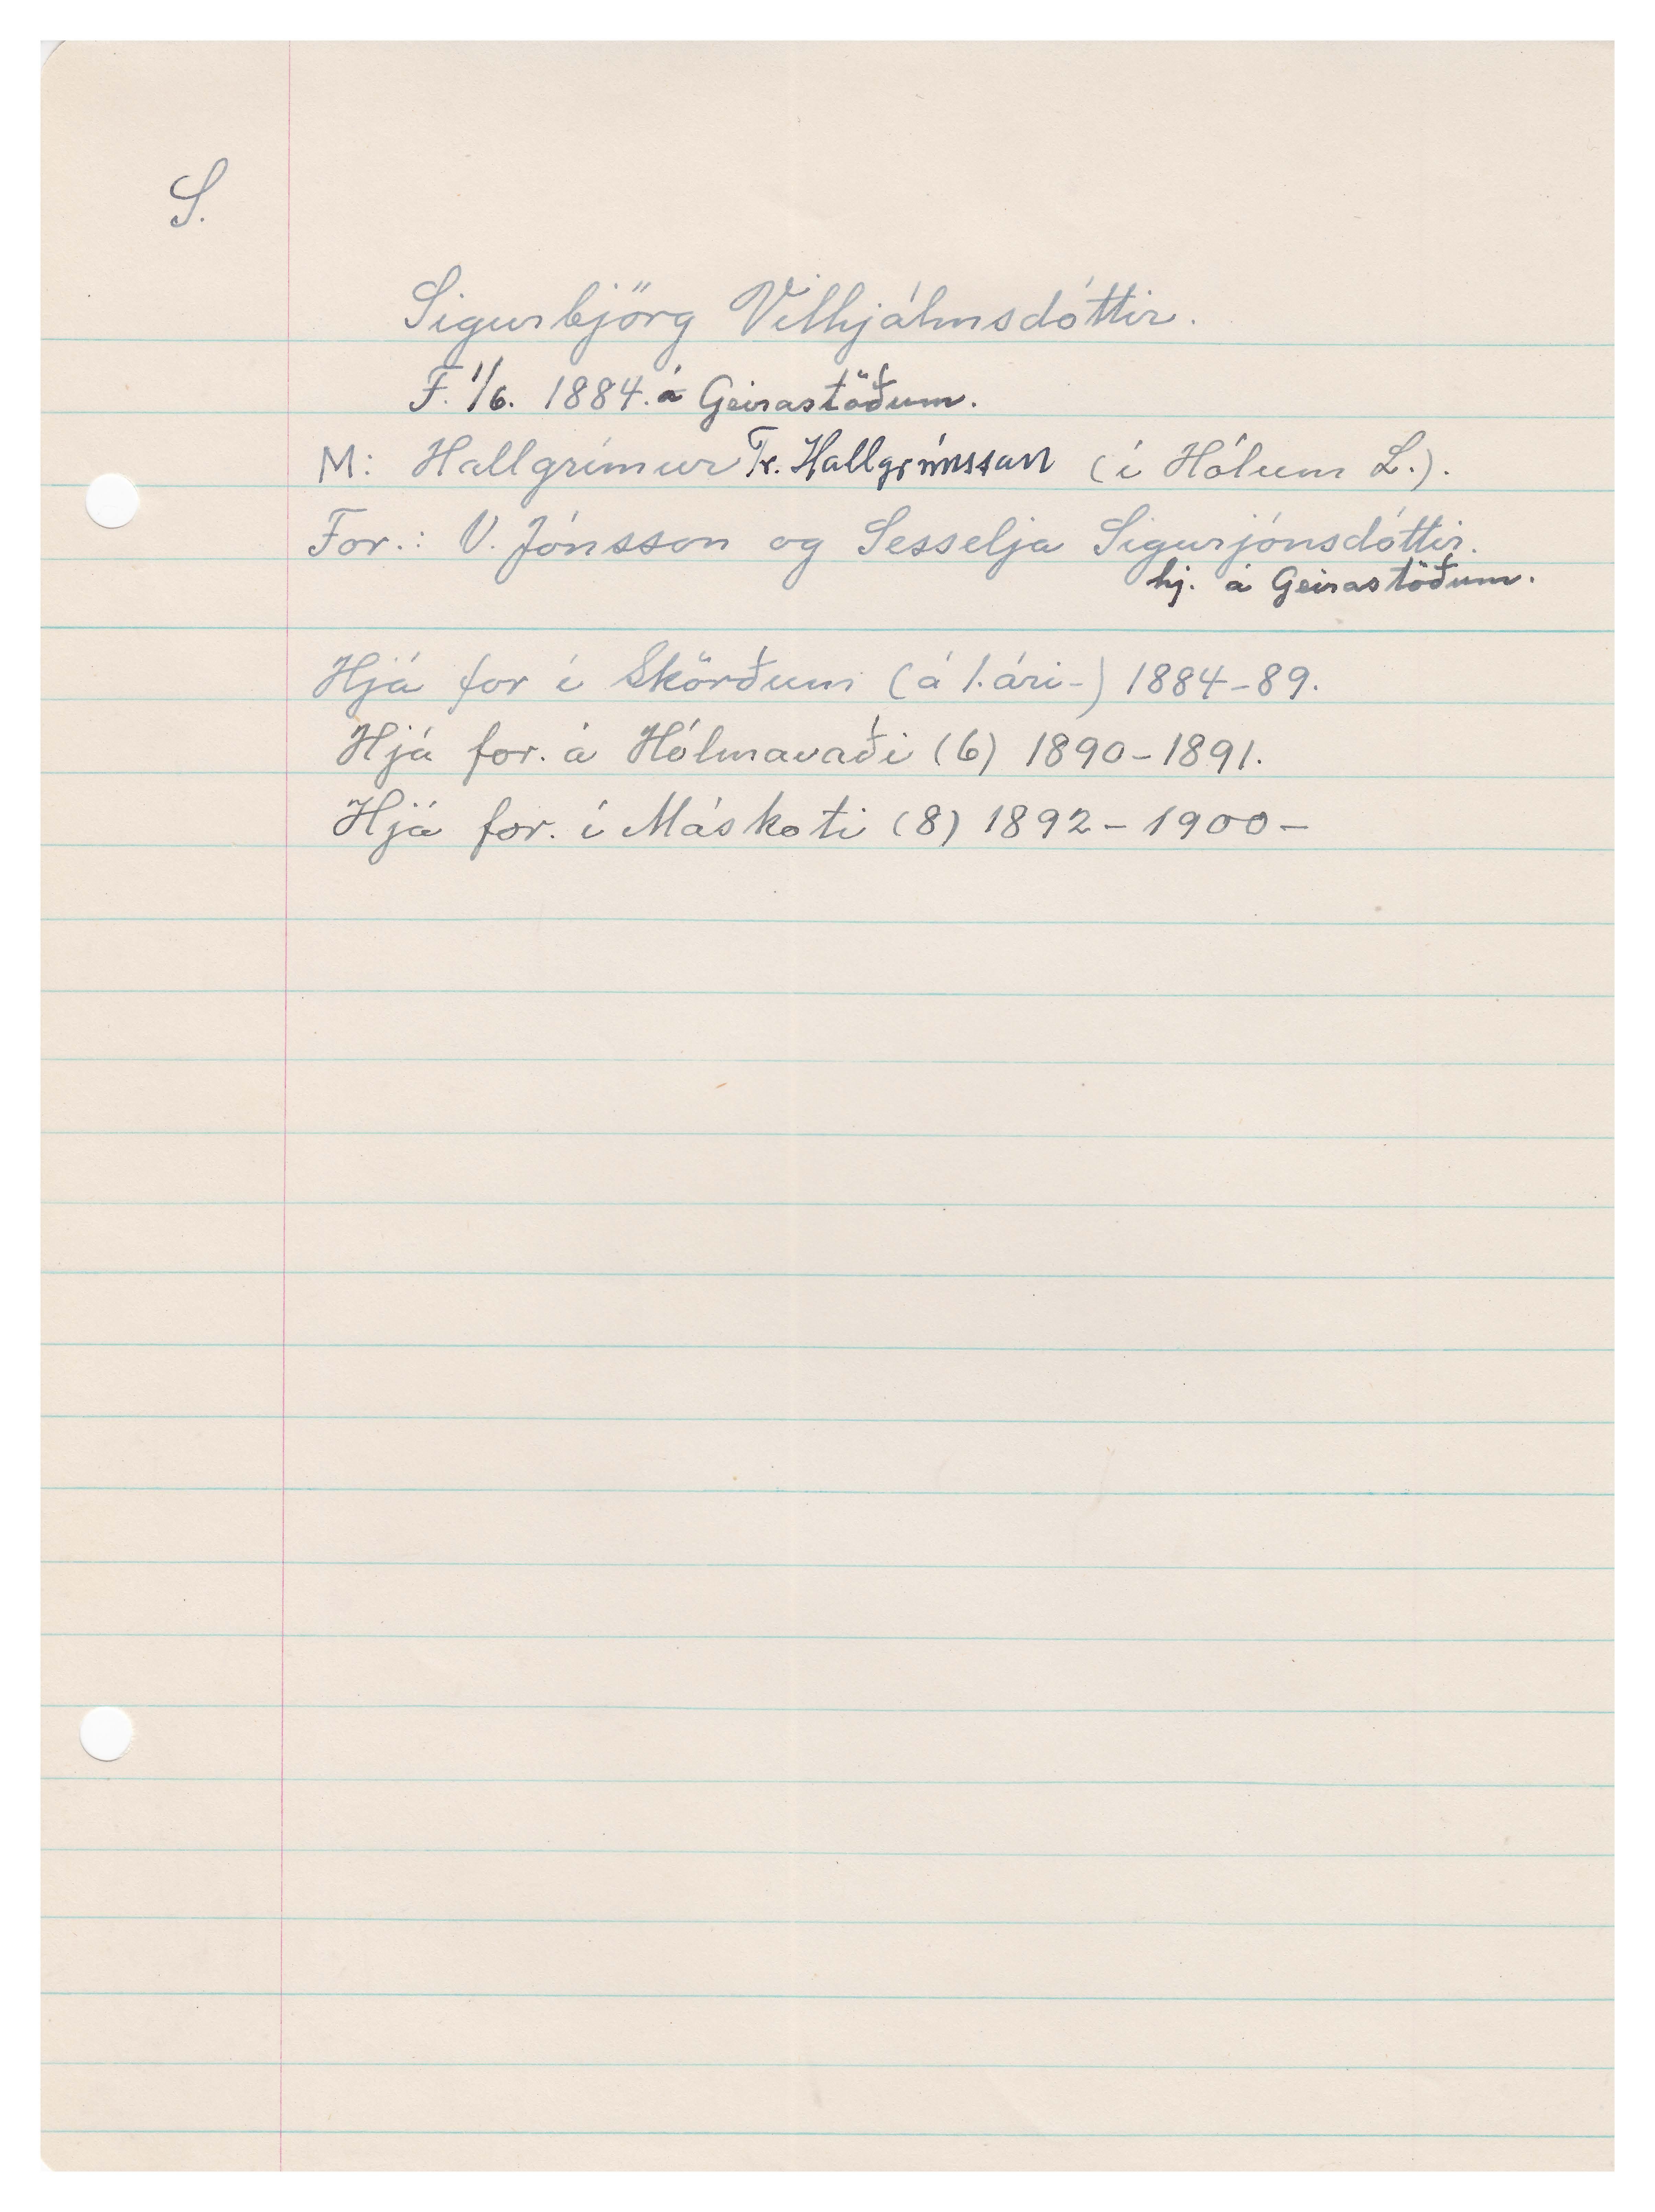 S.
Sigurbjörg Vilhjálmsdóttir.
F. 1/6. 1884. á Geirastöðum.
M: Hallgrímur Tr. Hallgrímsson (í Hólum L.).
For.: V. Jónsson og Sesselja Sigurjónsdóttir.
hj. á Geirastöðum.
Hjá for í Skörðum (á 1. ári-) 1884-89.
Hjá for. á Hólmavaði (6) 1890-1891.
Hjá for. í Máskoti (8) 1892-1900-